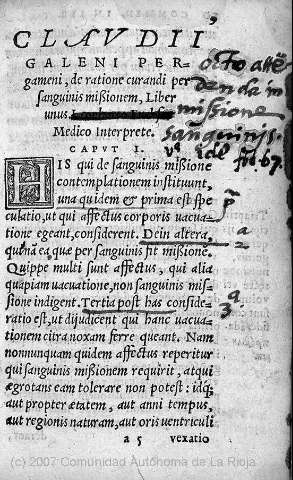 CLAVDII
GALENI PER-
gameni, de ratione curandi per
sanguinis mißionem, Liber
unus.
Medico Interprete.
CAPVT I.
HIS qui de sanguinis mißione
contemplationem instituunt,
una quidem & prima est spe
culatio, ut qui affectus corporis vacua-
tione egeant, considerent. Dein altera,
quænã ea quæ per sanguinis fit mißionẽ.
Quippe multi sunt affectus, qui alia
quapiam vacuatione, non sanguinis mis-
sione indigent. Tertia post has conside-
ratio est, ut dijudicent qui hanc vacua-
tionem citra noxam ferre queant. Nam
nonnunquam quidem affectus reperitur
qui sanguinis mißionem requirit, atqui
ægrotans eam tolerare non potest: idq;
aut propter ætatem, aut anni tempus,
aut regionis naturam, aut oris ventriculi
a 5 vexatio
octo attẽ
denda in
missione
sanguinis.
fol. 67.
2ª
3ª
(c) 2007 Comunidad Autónoma de La Rioja